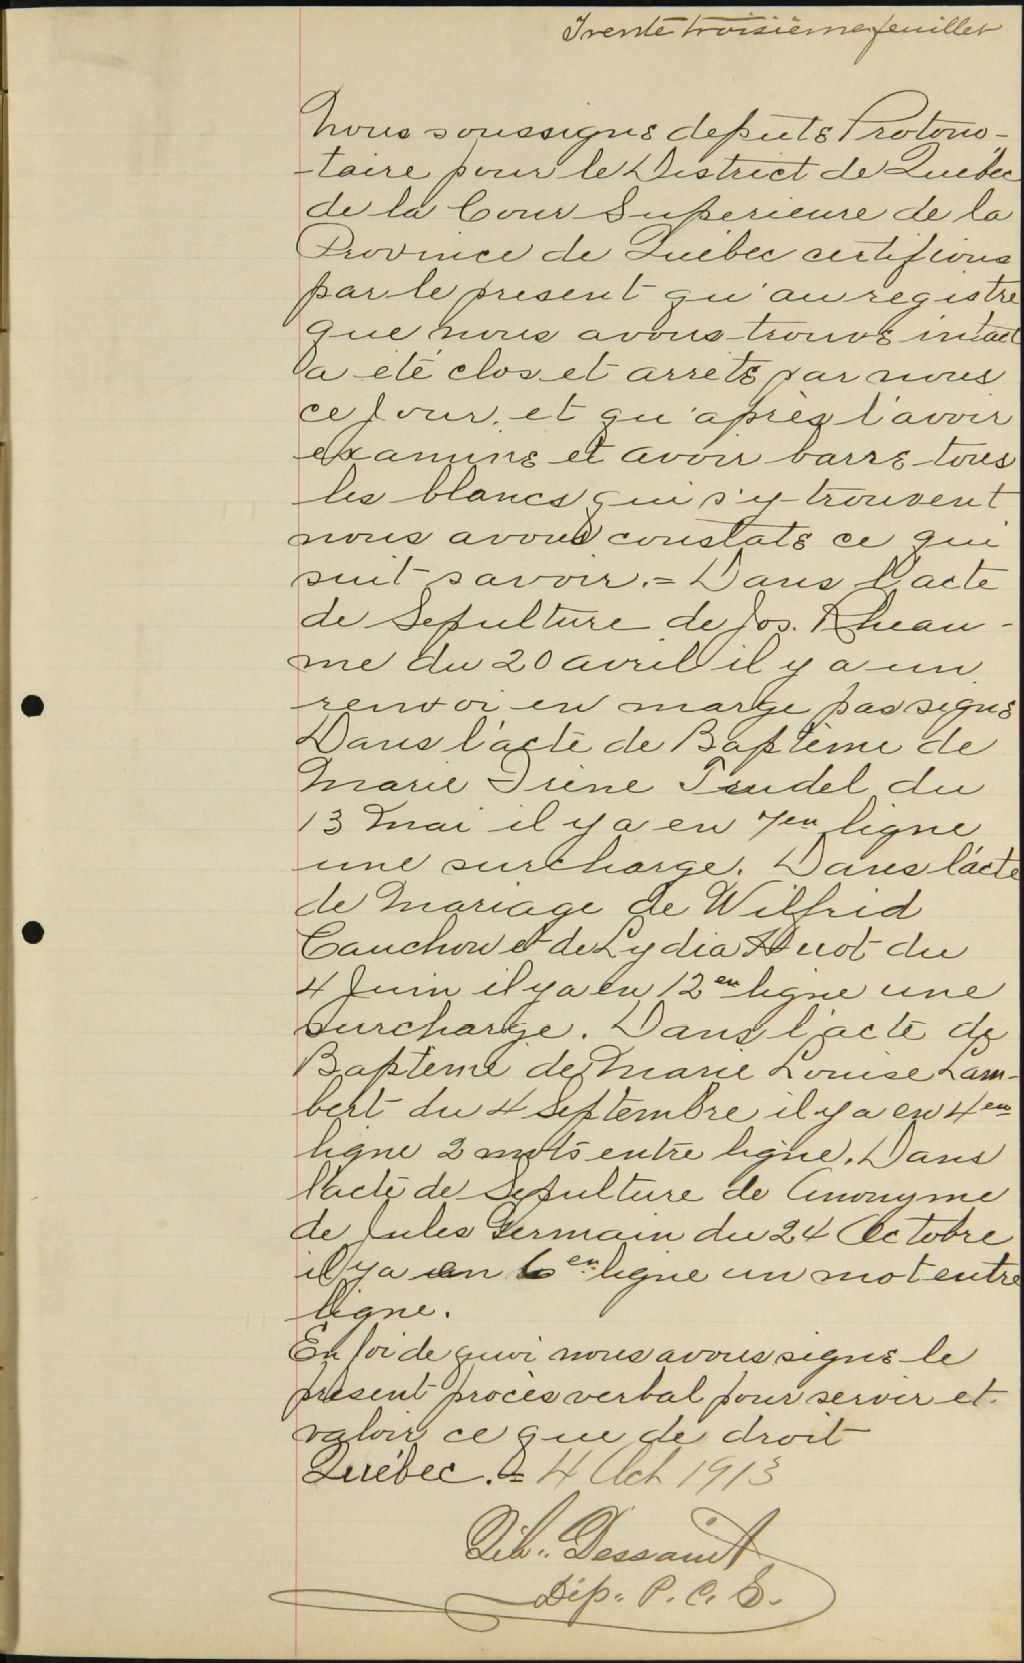 Trente troisième feuillet
Nous soussigné député Protono-
-taire pour le District de Québec
de la Cour Superieure de la
Province de Québec certifions
par le present qu'au registre
que nous avons trouvé intact
a été clos et arrêté par nous
ce jour. et qu'après l'avoir
examiné et avoir barré tous
les blancs qui s'y trouvent
nous avons constaté ce qui
suit savoir.= Dans l'acte
de Sepulture de Jos. Rheau-
me du 20 avril il y a un
renvoi en marge pas signé
Dans l'acte de Baptême de
Marie Irène Trudel du
13 Mai il y a en 7en ligne
une surcharge. Dans l'acte
de Mariage de Wilfrid
Cauchon et de Lydia Huot du
4 Juin il y a en 12en ligne une
surcharge. Dans l'acte de
Baptême de Marie Louise Lam-
bert du 4 Septembre il y a en 4em
ligne 2 mots entre ligne. Dans
l'acte de Sepulture de Anonyme
de Jules Germain du 24 Octobre
il y a en 6en ligne un mot entre
ligne.
En foi de quoi nous avons signé le
présent procès verbal pour servir et
valoir ce que de droit
Québec.= 4 Oct 1913
Dessaint
Dép. P. C. S.